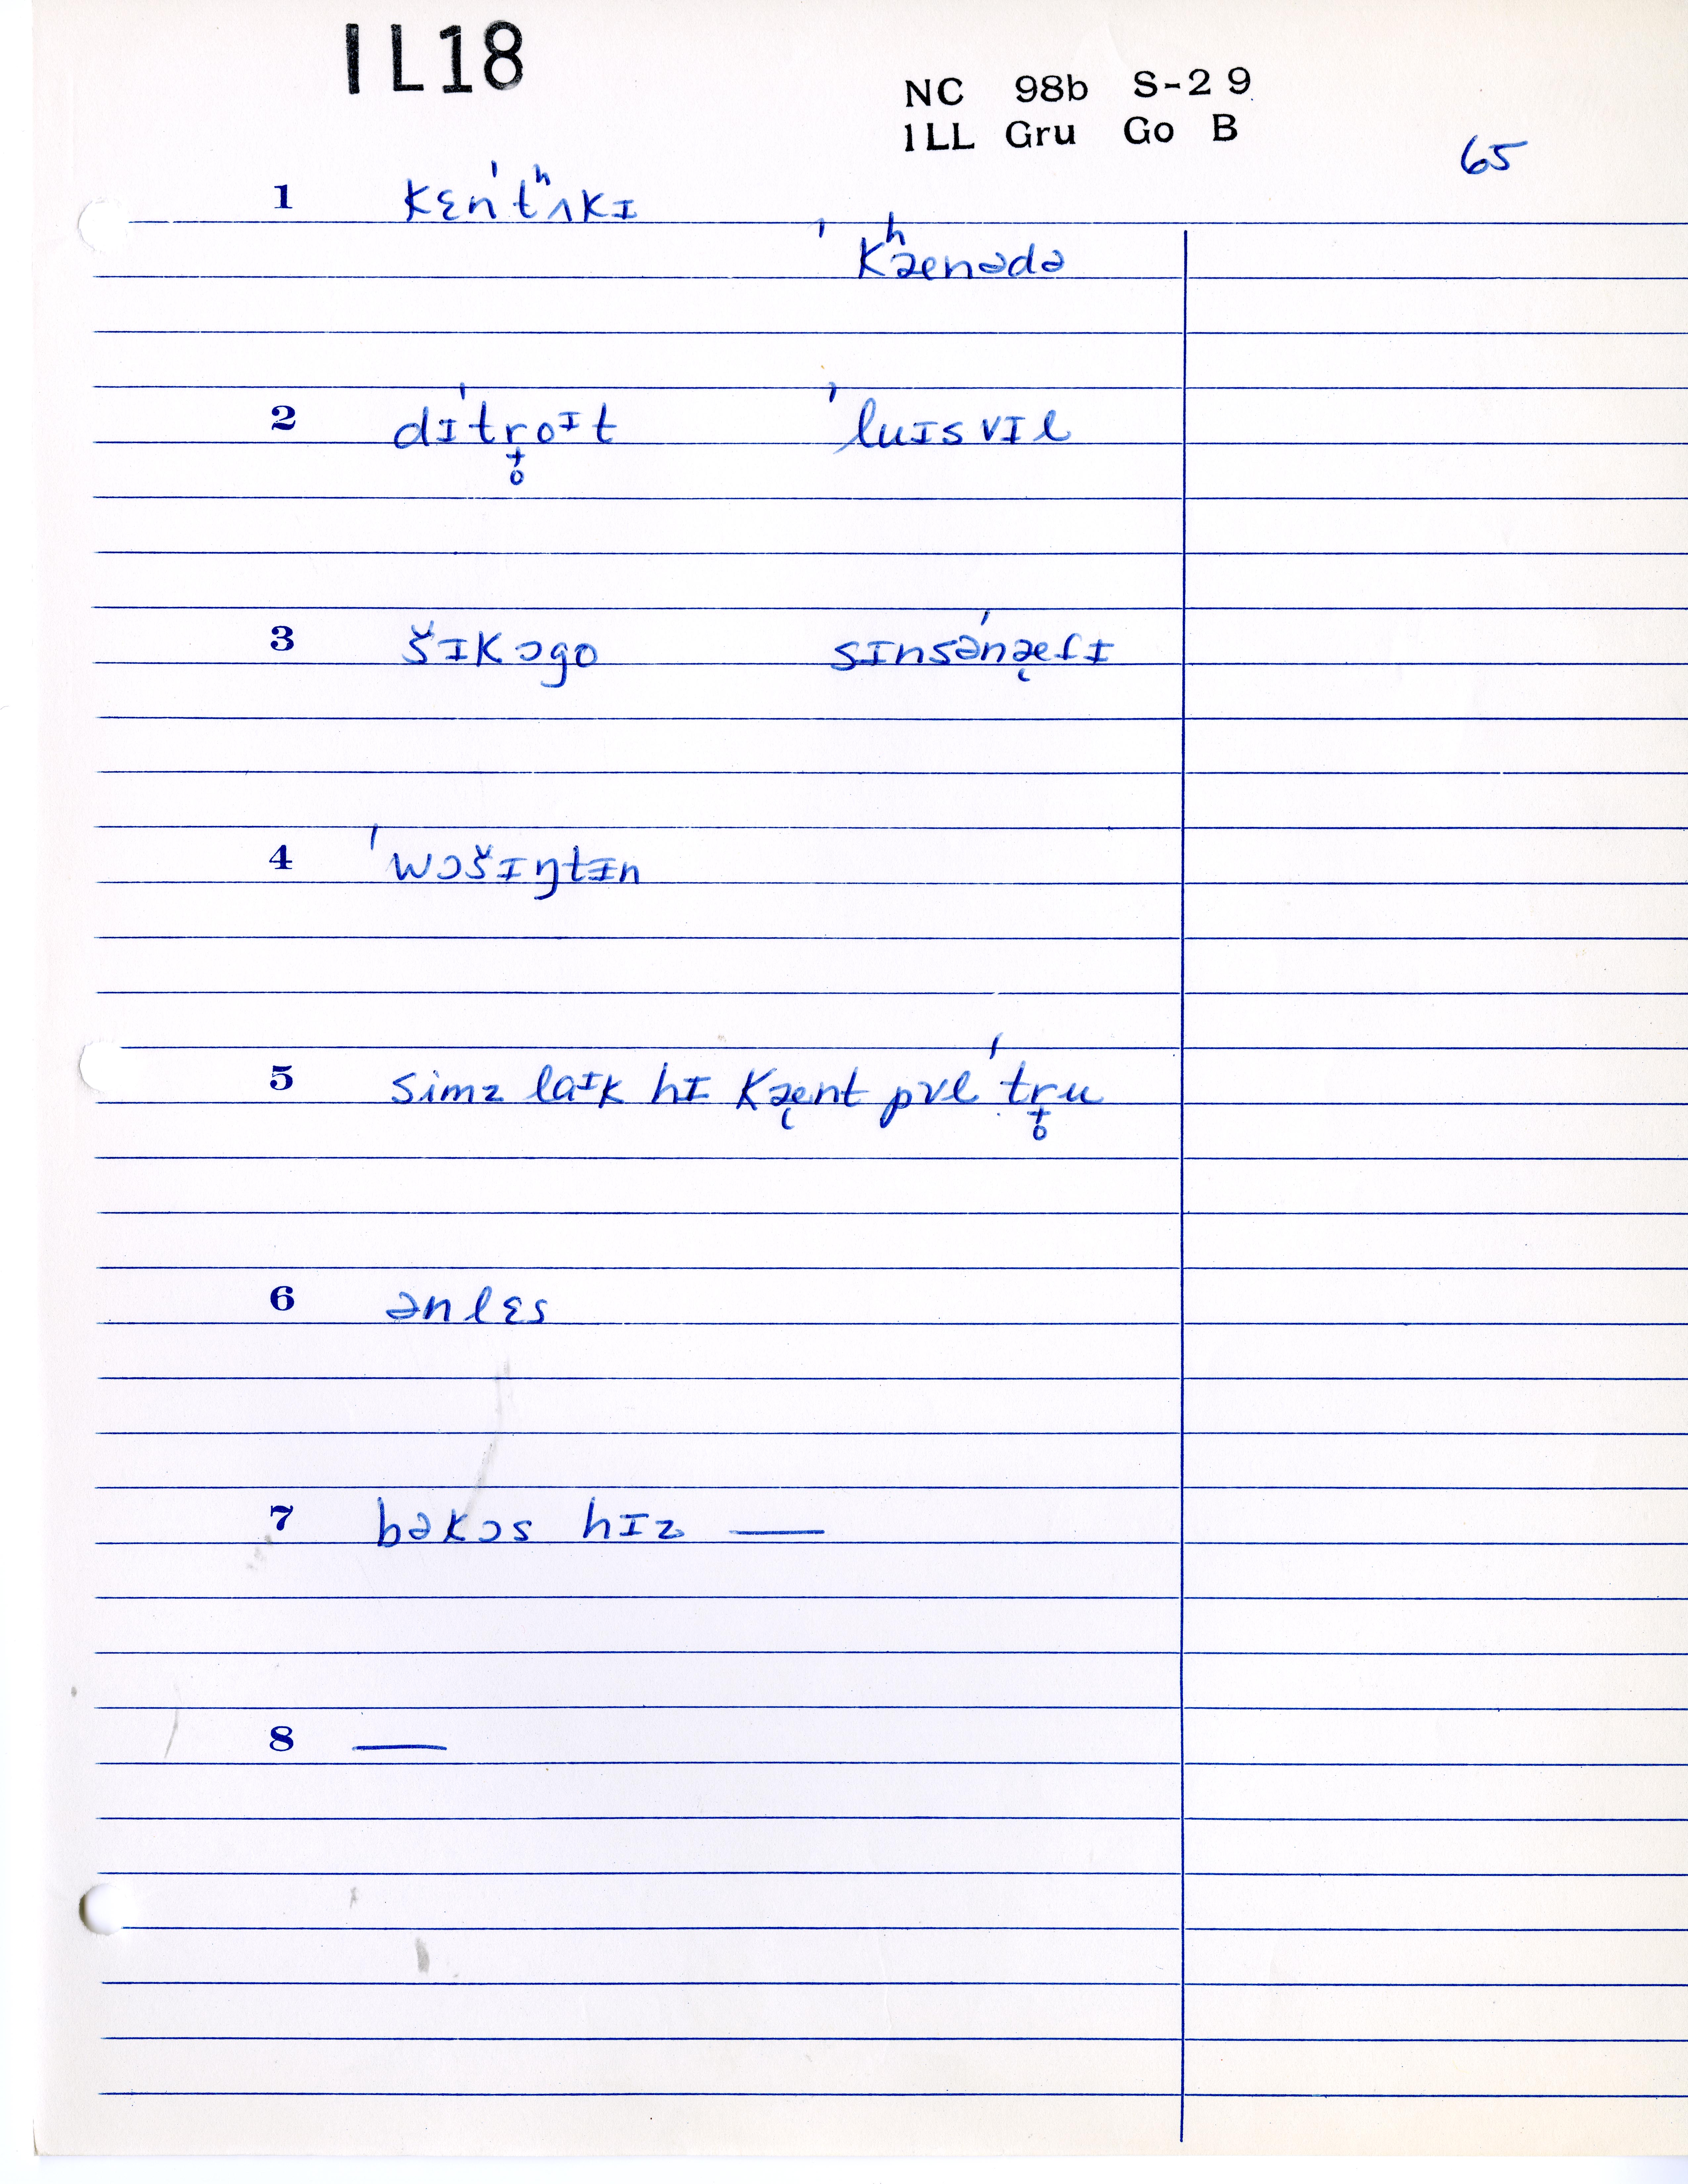 IL18
NC 98b S-29
ILL Gru Go B
65
1 kɛnˈtʰʌkɪ
ˈkʰænədə
2 dɪˈtr̟̊oᶦt ˈluɪsvɪl
3 šɪkɔgo sɪnsəˈnæ̨ɾɪ
4 ˈwɔšɪŋtɪn
5 simz laᶦk hɪ kæ̨nt pʊl ˈtr̟̊u
6 ənlɛs
7 bəkɔs hɪz —
8 —